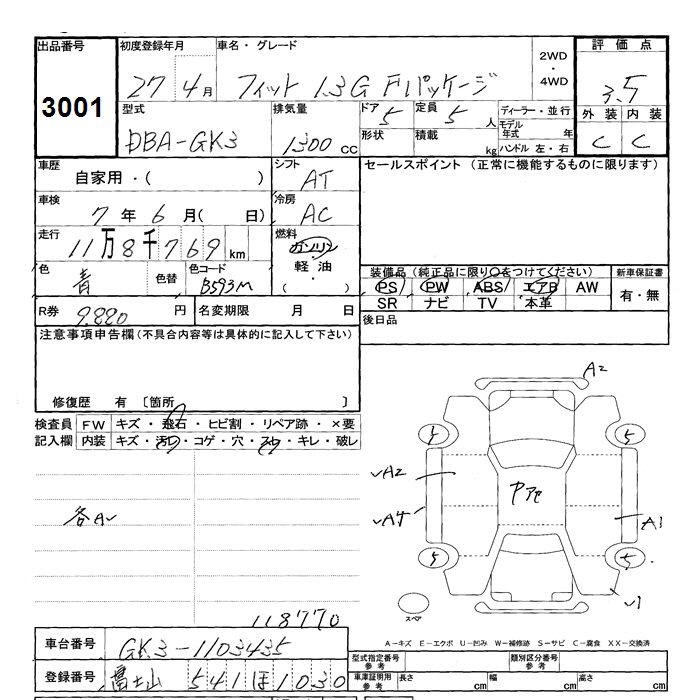 出品番号 初度登録年月 車名・グレード 2WD・4WD 評価点
3001 27 4月 フィット 1.3G Fパッケージ 3.5
型式 排気量 ドア 5 定員 5人 ディーラー・並行 外装 内装
DBA-GK3 1300cc 形状 積載 kg モデル年式 年 ハンドル 左・右 C C
車歴 自家用・( ) シフト AT セールスポイント (正常に機能するものに限ります)
車検 7年 6月( 日) 冷房 AC
走行 11万8千769km 燃料 ガソリン 軽油 ( )
色 青 色替 色コード B593M
装備品(純正品に限り○をつけてください) 新車保証書
PS PW ABS エアB AW 有・無
SR ナビ TV 本革
R券 9.880円 名変期限 月 日 後日品
注意事項申告欄(不具合内容等は具体的に記入して下さい)
修復歴 有 〔箇所 〕
検査員 FW キズ・飛石・ヒビ割・リペア跡・×要
記入欄 内装 キズ・汚レ・コゲ・穴・スレ・キレ・破レ
A2
5 5
A2
Pアセ
A4 A1
各A
5 5
1
スペア
118770
A-キズ E-エクボ U-凹み W-補修跡 S-サビ C-腐食 XX-交換済
車台番号 GK3-1103435 型式指定番号 参考 類別区分番号 参考
登録番号 富士山 541 ほ 1030 車庫証明用 参考 長さ cm 幅 cm 高さ cm